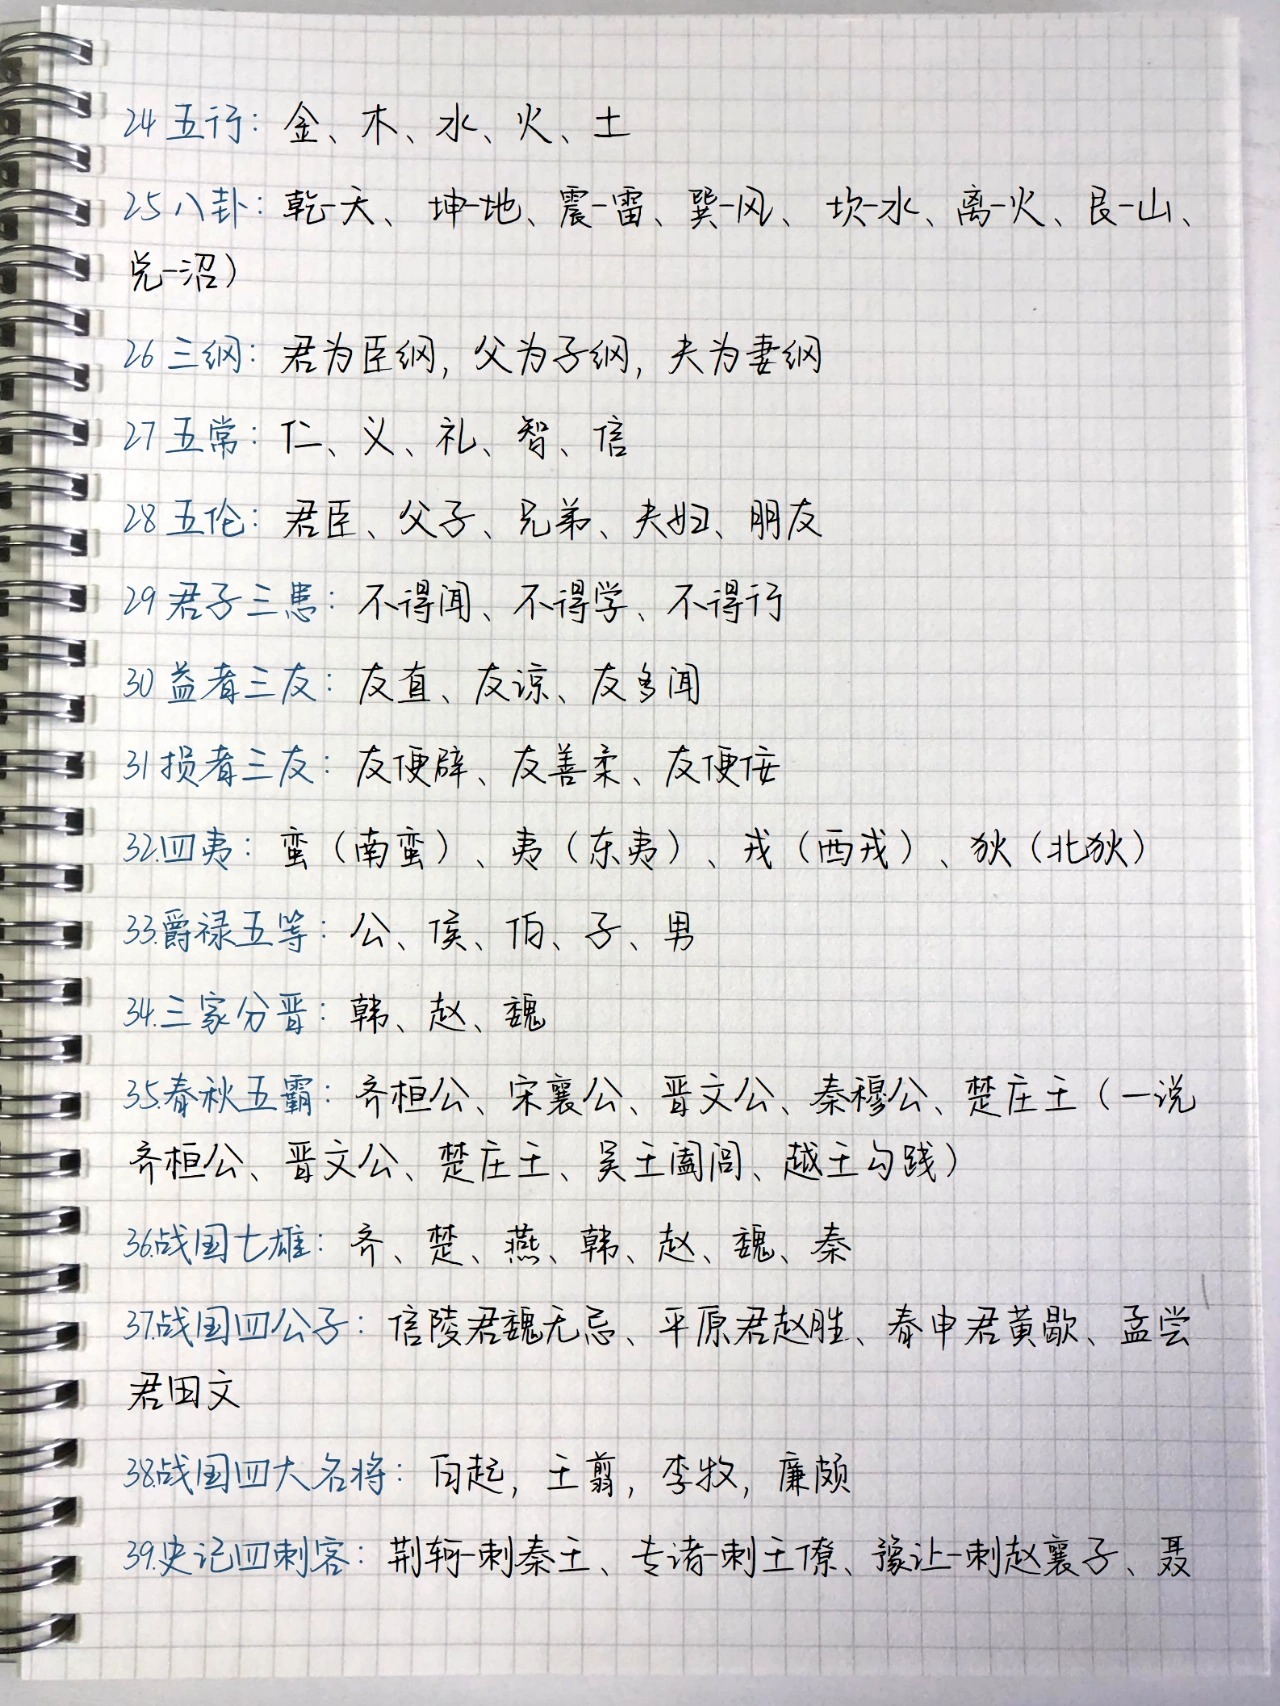 24 五行：金、木、水、火、土
25 八卦：乾-天、坤-地、震-雷、巽-风、坎-水、离-火、艮-山、
兑-沼）
26 三纲：君为臣纲，父为子纲，夫为妻纲
27 五常：仁、义、礼、智、信
28 五伦：君臣、父子、兄弟、夫妇、朋友
29 君子三患：不得闻、不得学、不得行
30 益者三友：友直、友谅、友多闻
31 损者三友：友便辟、友善柔、友便佞
32.四夷：蛮（南蛮）、夷（东夷）、戎（西戎）、狄（北狄）
33.爵禄五等：公、侯、伯、子、男
34.三家分晋：韩、赵、魏
35.春秋五霸：齐桓公、宋襄公、晋文公、秦穆公、楚庄王（一说
齐桓公、晋文公、楚庄王、吴王阖闾、越王勾践）
36.战国七雄：齐、楚、燕、韩、赵、魏、秦
37.战国四公子：信陵君魏无忌、平原君赵胜、春申君黄歇、孟尝
君田文
38.战国四大名将：白起，王翦，李牧，廉颇
39.史记四刺客：荆轲-刺秦王、专诸-刺王僚、豫让-刺赵襄子、聂